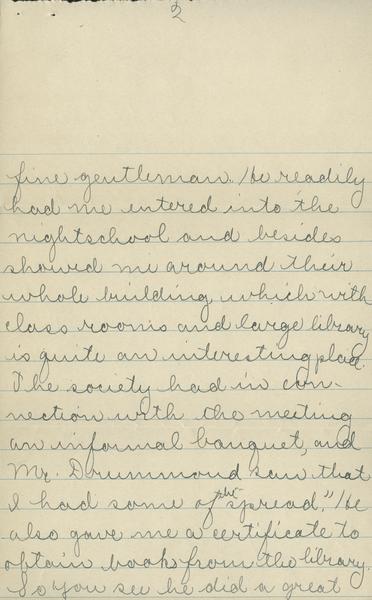 2
fine gentleman. He readily
had me entered into the
nightschool and besides
showed me around their
whole building, which with
class rooms and large library
is quite an interesting place.
The society had in con-
nection with the meeting
an informal banquet, and
Mr. Drummond saw that
I had some of the "spread." He
also gave me a certificate to
obtain books from the library.
So you see he did a great